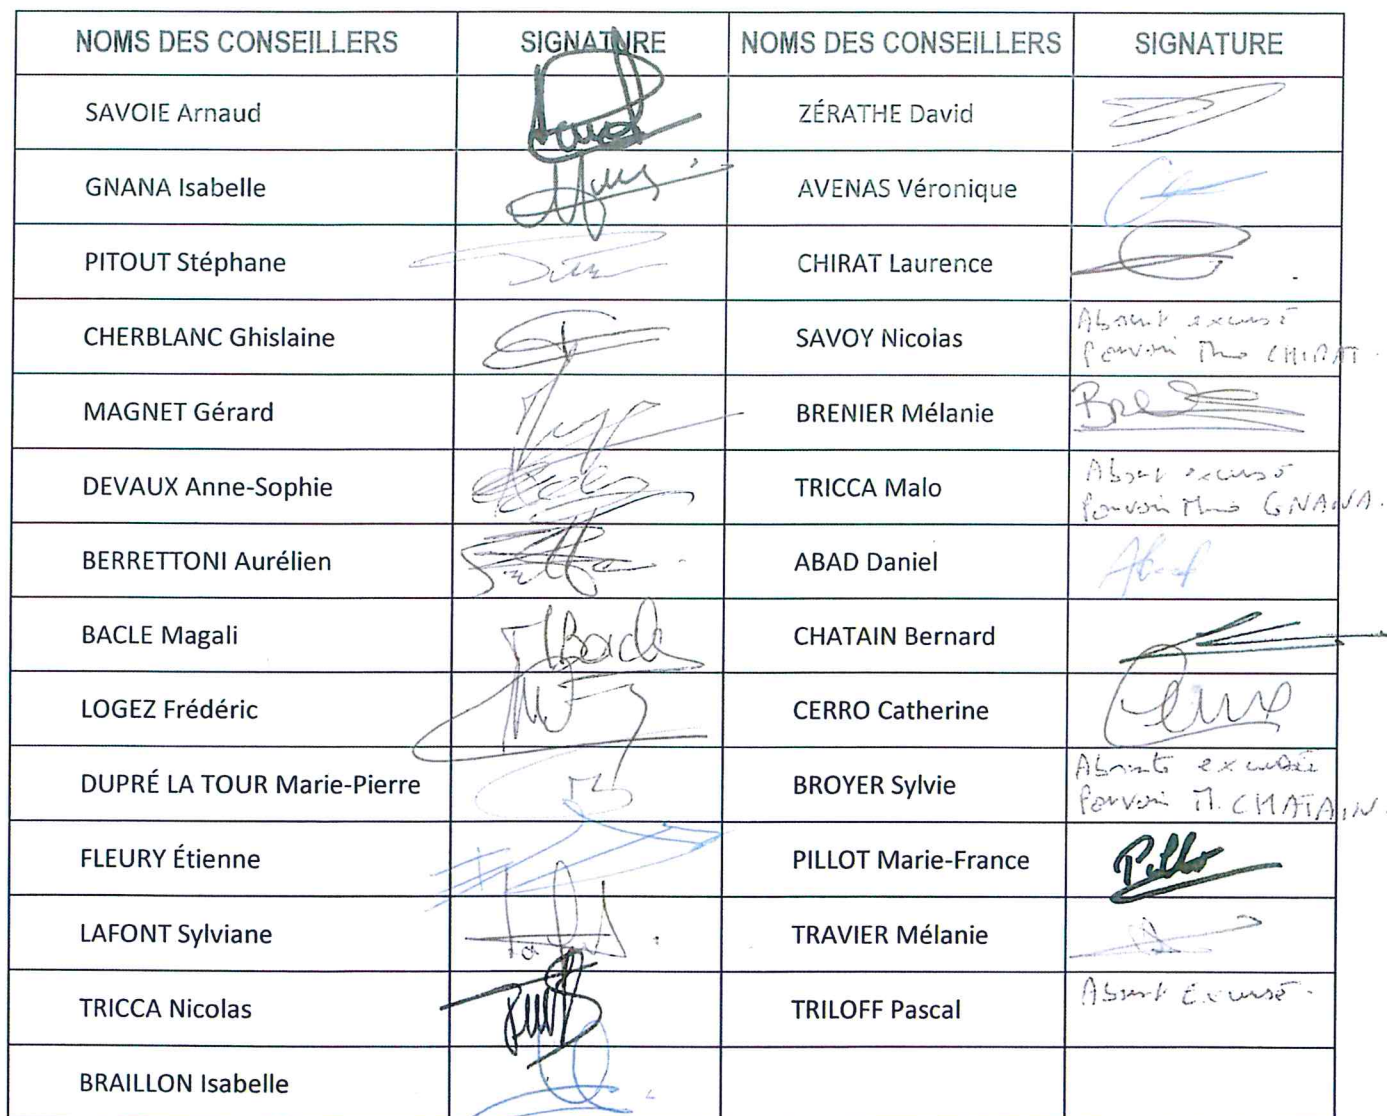 NOMS DES CONSEILLERS SIGNATURE NOMS DES CONSEILLERS SIGNATURE
SAVOIE Arnaud ZÉRATHE David
GNANA Isabelle AVENAS Véronique
PITOUT Stéphane CHIRAT Laurence
CHERBLANC Ghislaine SAVOY Nicolas Absent excusé
Pouvoir Mme CHIRAT.
MAGNET Gérard BRENIER Mélanie
DEVAUX Anne-Sophie TRICCA Malo Absent excusé
Pouvoir Mme GNANA.
BERRETTONI Aurélien ABAD Daniel Abad
BACLE Magali Bacle CHATAIN Bernard
LOGEZ Frédéric CERRO Catherine
DUPRÉ LA TOUR Marie-Pierre BROYER Sylvie Absente excusée
Pouvoir M. CHATAIN.
FLEURY Étienne PILLOT Marie-France Pillot
LAFONT Sylviane TRAVIER Mélanie
TRICCA Nicolas TRILOFF Pascal Absent Excusé.
BRAILLON Isabelle